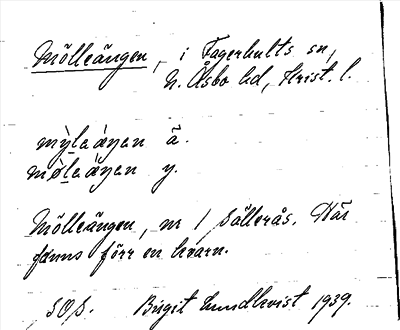 Mölleängen, i Fagerhults sn,
N. Åsbo hd, Krist. l.
mỳleáŋen ä.
møleáŋen y.
Mölleängen, nr 1 Bälterås. Här
fanns förr en kvarn.
SOS. Birgit Lundkvist 1939.